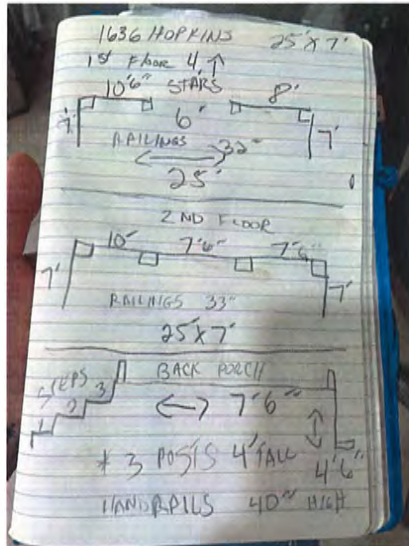 1636 HOPKINS 25' X 7'
1st Floor 4 ↑
10'6" STARS 8'
7' 6' 7'
RAILINGS 32"
25'
2ND FLOOR
10' 7'6" 7'6"
7' 7'
RAILINGS 33"
25' X 7'
BACK PORCH
STEPS 1 2 3
7'6"
* 3 POSTS 4' TALL 4'6"
HANDRAILS 40" HIGH